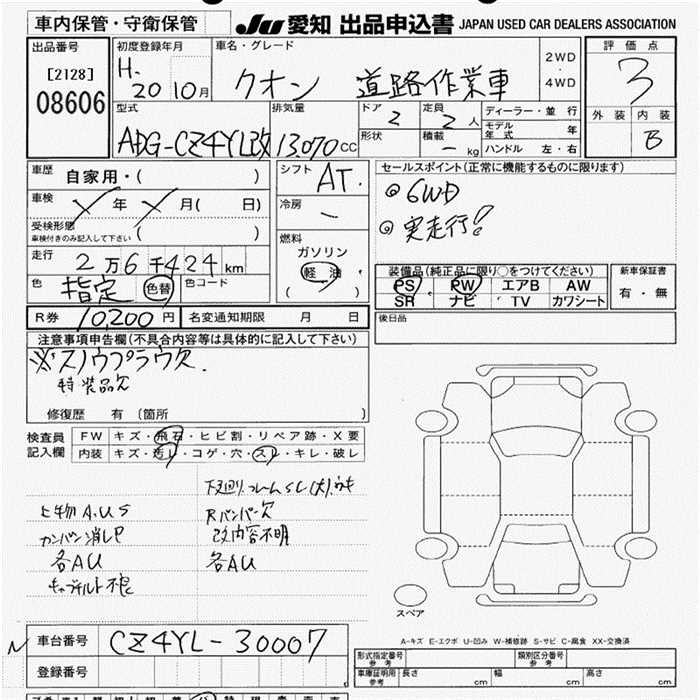 車内保管・守衛保管
JU 愛知 出品申込書 JAPAN USED CAR DEALERS ASSOCIATION
出品番号
[2128]
08606
初度登録年月
H. 20 10月
車名・グレード
クオン 道路作業車
2WD
・
4WD
評価点
3
外装 内装
B
型式
ADG-CZ4YL改
排気量
13,070 CC
ドア 2
定員 2人
形状
積載 - kg
ディーラー・並 行
モデル年式 年
ハンドル 左・右
車歴 自家用・( )
車検 年 月( 日)
受検形態
車検付きのみ記入して下さい ( )
走行 2万6千424km
色 指定 色替
色コード
シフト AT.
冷房 -
燃料
ガソリン
軽 油
( )
セールスポイント(正常に機能するものに限ります)
◎ 6WD
◎ 実走行!
装備品(純正品に限り〇をつけてください)
PS PW エアB AW
SR ナビ TV カワシート
新車保証書
有・無
R券 10,200円
名変通知期限 月 日
後日品
注意事項申告欄(不具合内容等は具体的に記入して下さい)
※スノウプラウ欠.
特装品欠
修復歴 有 〔箇所 〕
検査員記入欄
FW キズ・飛石・ヒビ割・リペア跡・X要
内装 キズ・汚レ・コゲ・穴・スレ・キレ・破レ
下廻り.フレームSC(大).ウキ
上物A.U.S
Rバンパー欠
カンバン消しP
改内容不明
各AU
各AU
スペア
A-キズ E-エクボ U-凹み W-補修跡 S-サビ C-腐食 XX-交換済
N
車台番号 CZ4YL-30007
登録番号
形式指定番号 参考
類別区分番号 参考
車庫証明用 参考
長さ cm
幅 cm
高さ cm